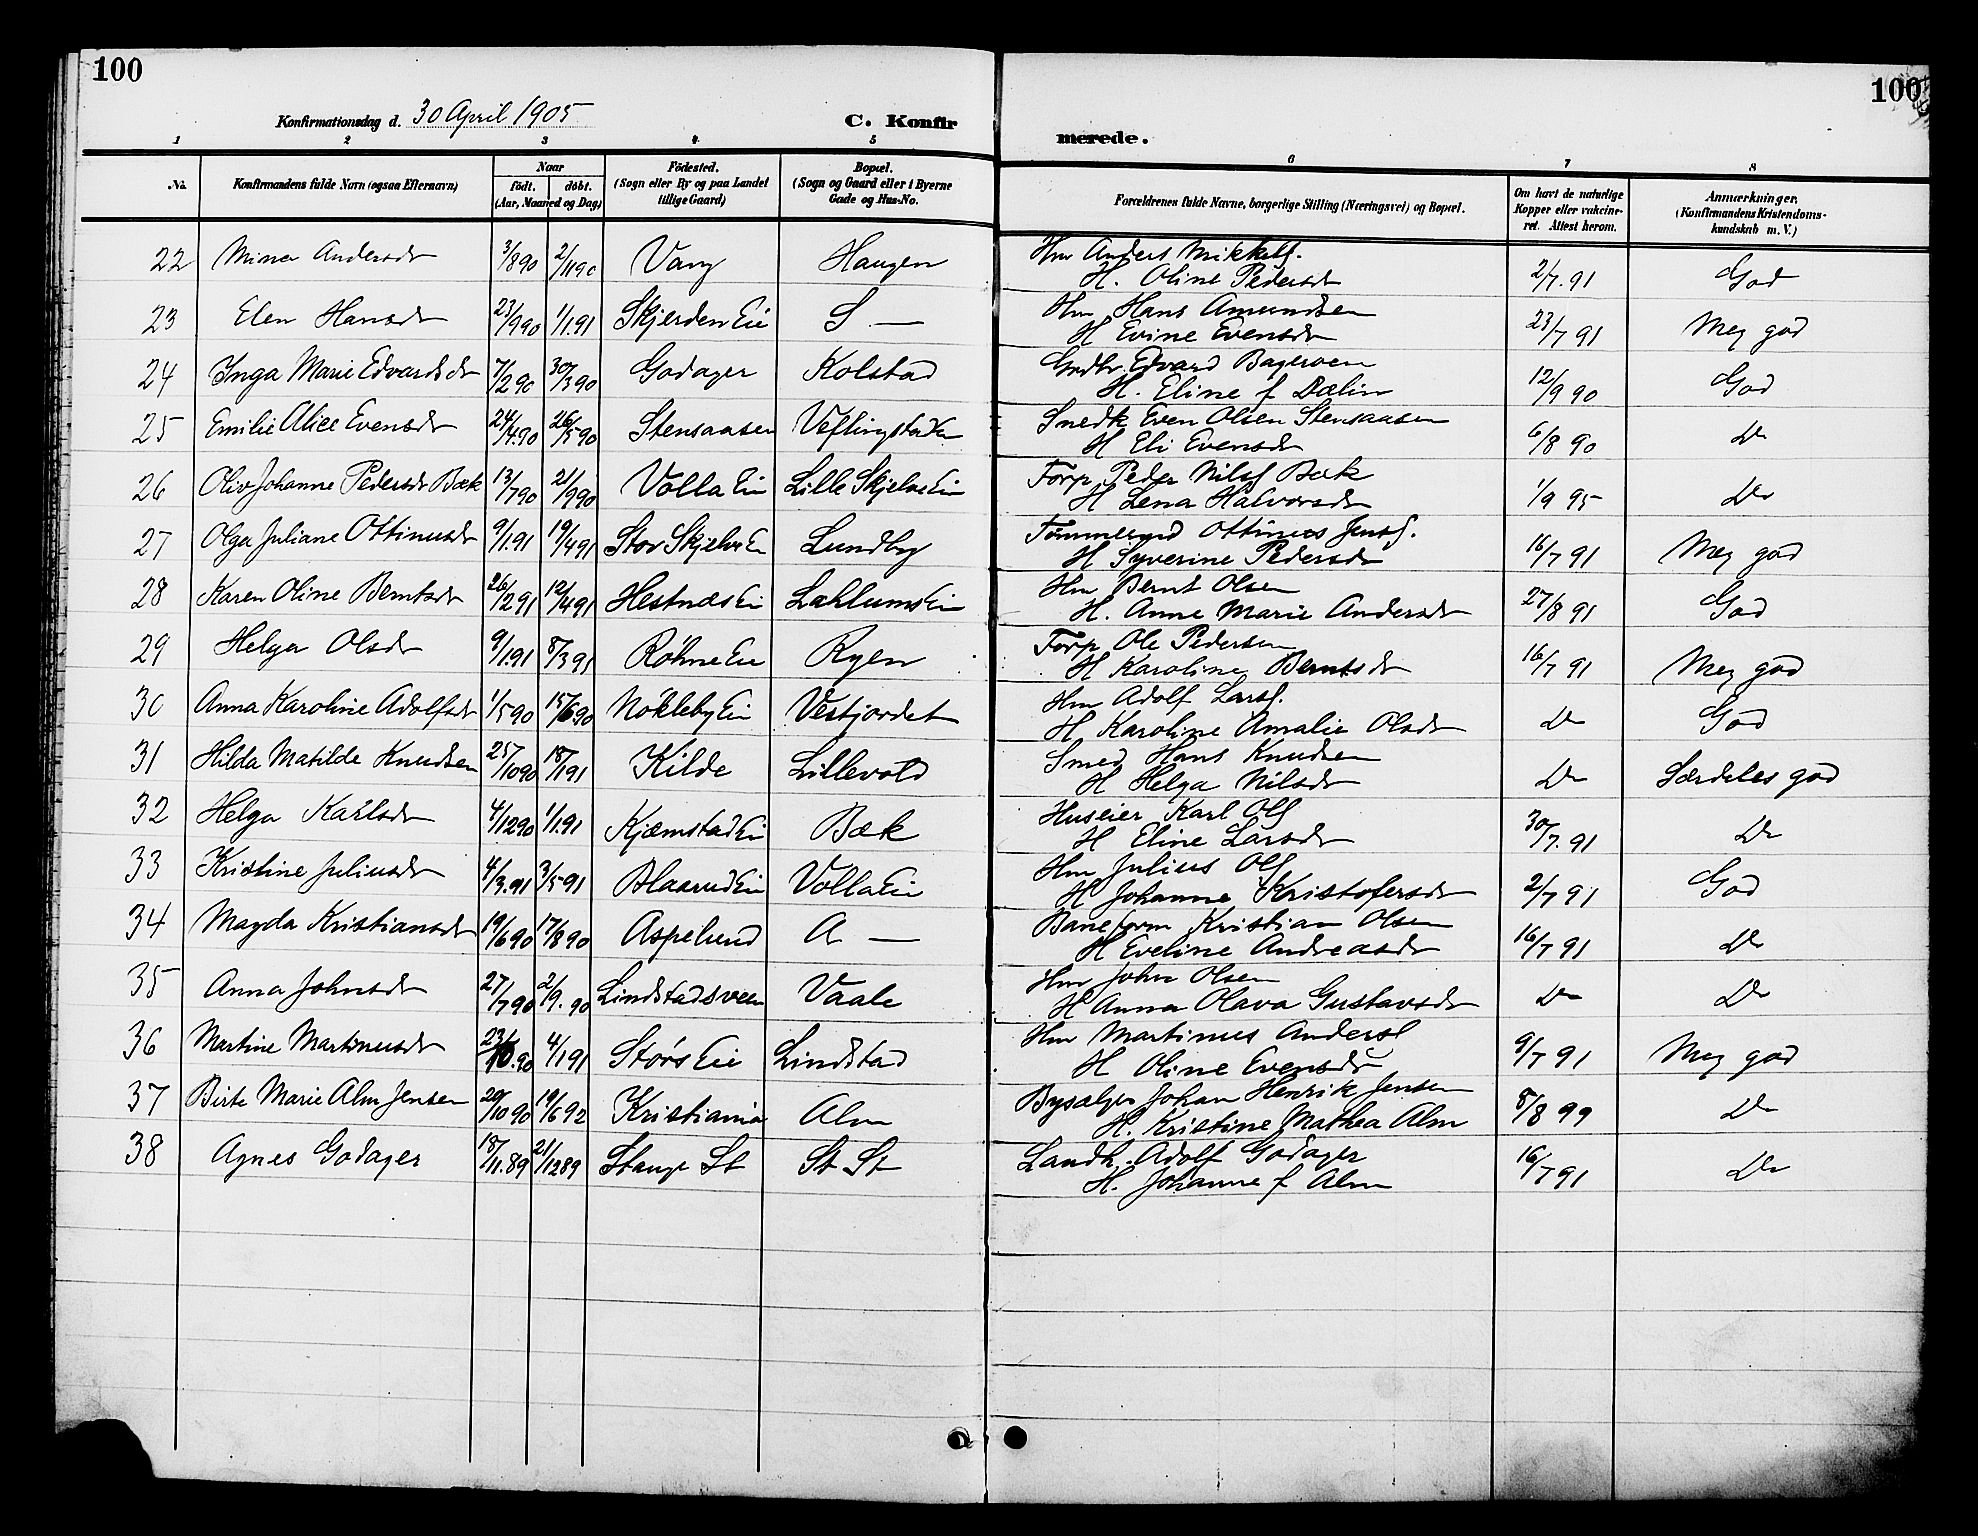 100
100
Konfirmationsdag d. 30 April 1905
C. Konfirmerede.
1 2 3 4 5 6 7 8
No. Konfirmandens fulde Navn (ogsaa Efternavn) Naar født. døbt. (Aar, Maaned og Dag) Fødested. (Sogn eller By og paa Landet tillige Gaard) Bopæl. (Sogn og Gaard eller i Byerne Gade og Hus-No. Forældrenes fulde Navne, borgerlige Stilling (Næringsvei) og Bopæl. Om havt de naturlige Kopper eller vakcineret. Attest herom. Anmærkninger. (Konfirmandens Kristendomskundskab m. V.)
22 Mina Andersdr 3/8 90 2/11 90 Vang Haugen Hm Anders Mikkels.
H. Oline Pedersdr 2/7. 91 God
23 Elen Hansdr 23/9 90 1/1 91 Skjerden Eie S — Hm Hans Amundsen
H Evine Evensdr 23/7 91 Meg god
24 Inga Marie Edvardsdr 7/2 90 30/3 90 Godager Kolstad Gbdbr. Edvard Bageroen
H. Eline f Dælin 12/9 90 God
25 Emilie Alice Evensdr 24/4 90 26/5 90 Stensaasen Veflingstad Snedk Even Olsen Stensaasen
H Eli Evensdr 6/8 90 Do
26 Oliv Johanne Pedersdr Bæk 13/7 90 21/9 90 Volla Ei Lille Skjelve Ei Forp. Peder Nilss Bæk
H Lena Halvorsdr 1/9 95 Do
27 Olga Juliane Ottinusdr 9/1. 91 19/4 91 Stor Skjelve Ei Lundby Tømmermd Ottinus Jenss.
H Syverine Pedersdr 16/7 91 Meg god
28 Karen Oline Berntsdr 26/2 91 12/4 91 Hestnæs Ei Lahlums Ei Hm Bernt Olsen
H. Anne Marie Andersdr 27/8 91 God
29 Helga Olsdr 9/1. 91 8/3 91 Røhne Eie Ryen Forp Ole Pedersen
H Karoline Berntsdr 16/7 91 Meg god
30 Anna Karoline Adolfsdr 1/5 90 15/6 90 Nökleby Ei Vestjordet Hm Adolf Larss.
H Karoline Amalie Olsdr Do God
31 Hilda Matilde Knudsen 25/10 90 18/1 91 Kilde Lillevold Smed Hans Knudsen
H Helga Nilsdr Do Særdeles god
32 Helga Karlsdr 4/12 90 1/1. 91 Kjæmstad Ei Bæk Huseier Karl Ols
H Eline Larsdr 30/7. 91 Do
33 Kristine Juliusdr 4/3. 91 3/5 91 Blaarud Ei Volla Eie Hm Julius Ols
H Johanne Kristofersdr 2/7 91 God
34 Magda Kristiansdr 19/6 90 17/8 90 Aspelund A — Baneform Kristian Olsen
H Eveline Andreasdr 16/7 91 Do
35 Anna Johnsdr 27/7 90 2/9. 90 Lindstadsveen Vaale Hm John Olsen
H Anna Olava Gustavsdr Do Do
36 Martine Martinusdr 23/10. 90 4/1 91 Störs Eie Lindstad Hm Martinus Anders
H Oline Evensdr 9/7 91 Meg god
37 Birte Marie Alm Jensen 20/10 90 19/6 92 Kristiania Alm Bysælger Johan Henrik Jensen
H. Kristine Mathea Alm 8/8 99 Do
38 Agnes Godager 18/11. 89 21/12 89 Stange St St St Landh. Adolf Godager
H. Johanne f Alm 16/7 91 Do